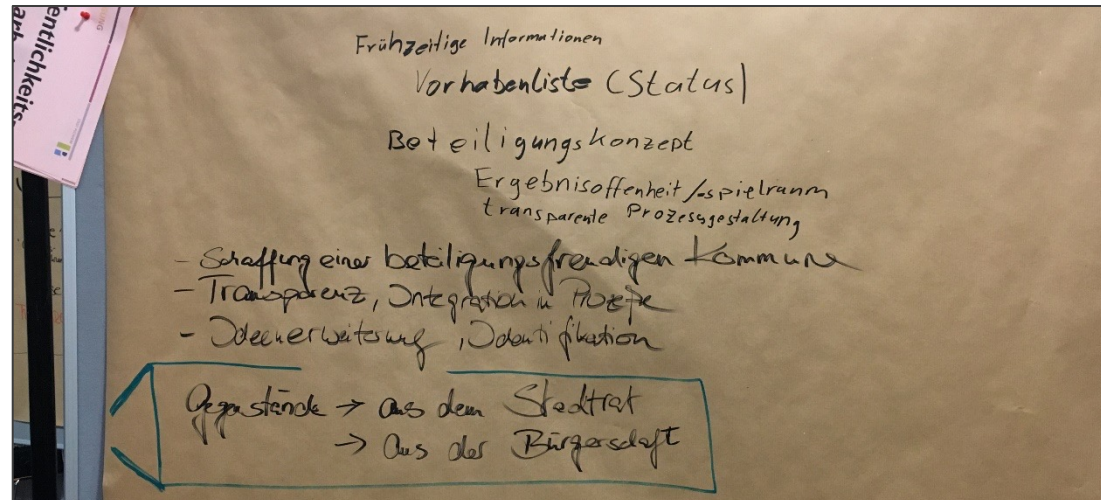 entlichkeits-
Frühzeitige Informationen
Vorhabenliste (Status)
Beteiligungskonzept
Ergebnisoffenheit /-spielraum
transparente Prozessgestaltung
- Schaffung einer beteiligungsfreudigen Kommune
- Transparenz, Integration in Prozeße
- Ideenerweiterung, Identifikation
Gegenstände → aus dem Stadtrat
→ aus der Bürgerschaft